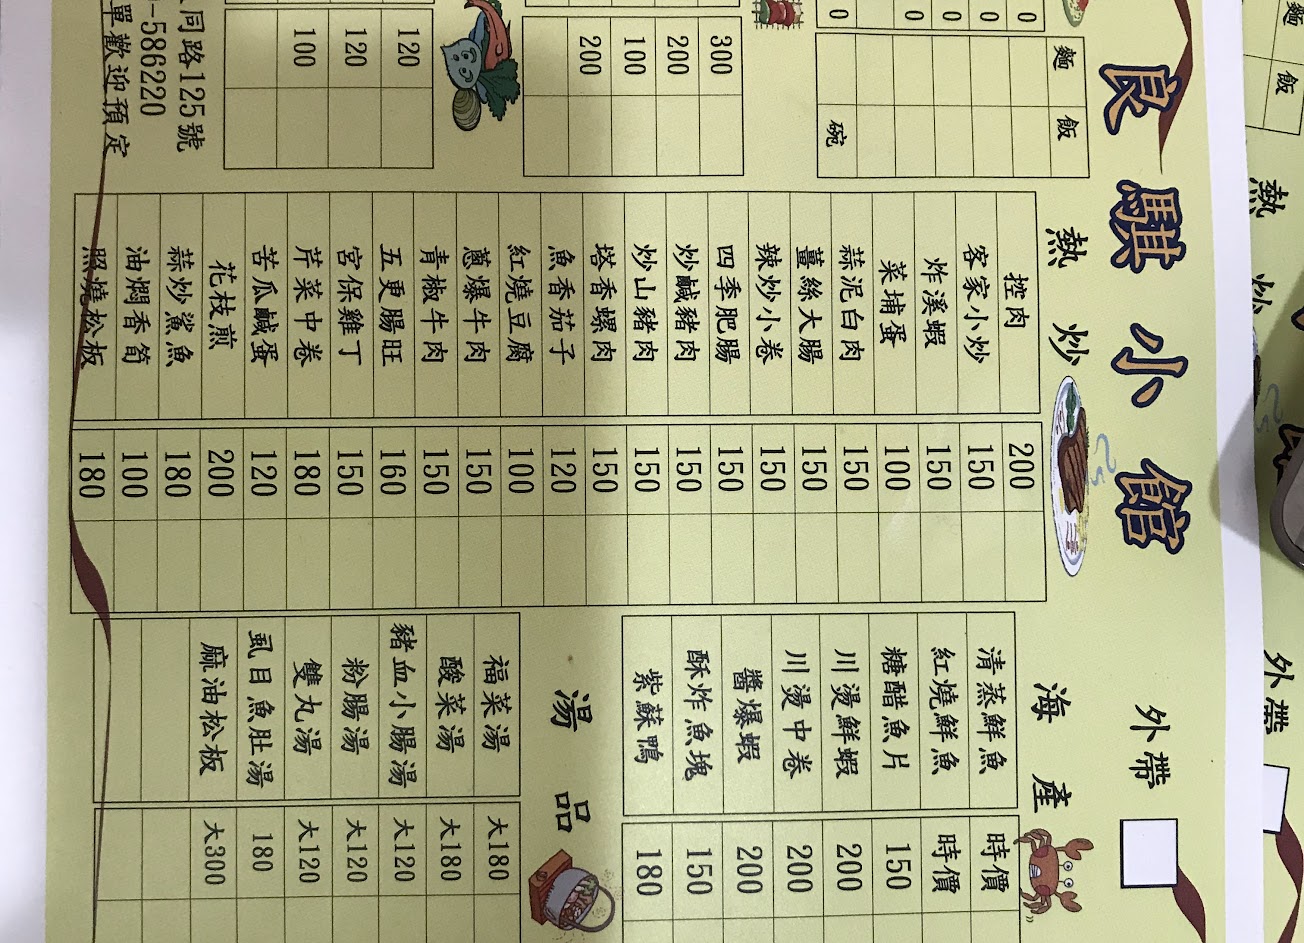 良騏小館 外帶
麵 飯
0
0
0
0
0 碗
300
200
100
200
120
120
100
同路125號
-586220
單歡迎預定
熱炒
控肉 200
客家小炒 150
炸溪蝦 150
菜埔蛋 100
蒜泥白肉 150
薑絲大腸 150
辣炒小卷 150
四季肥腸 150
炒鹹豬肉 150
炒山豬肉 150
塔香螺肉 150
魚香茄子 120
紅燒豆腐 100
蔥爆牛肉 150
青椒牛肉 150
五更腸旺 160
宮保雞丁 150
芹菜中卷 180
苦瓜鹹蛋 120
花枝煎 200
蒜炒鯊魚 180
油燜香筍 100
照燒松板 180
海產
清蒸鮮魚 時價
紅燒鮮魚 時價
糖醋魚片 150
川燙鮮蝦 200
川燙中卷 200
醬爆蝦 200
酥炸魚塊 150
紫蘇鴨 180
湯品
福菜湯 大180
酸菜湯 大180
豬血小腸湯 大120
粉腸湯 大120
雙丸湯 大120
虱目魚肚湯 180
麻油松板 大300
麵 飯
熱炒
外帶